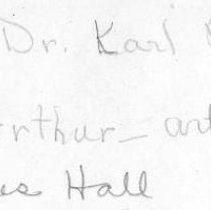 Dr. Karl
Arthur - art
Hall